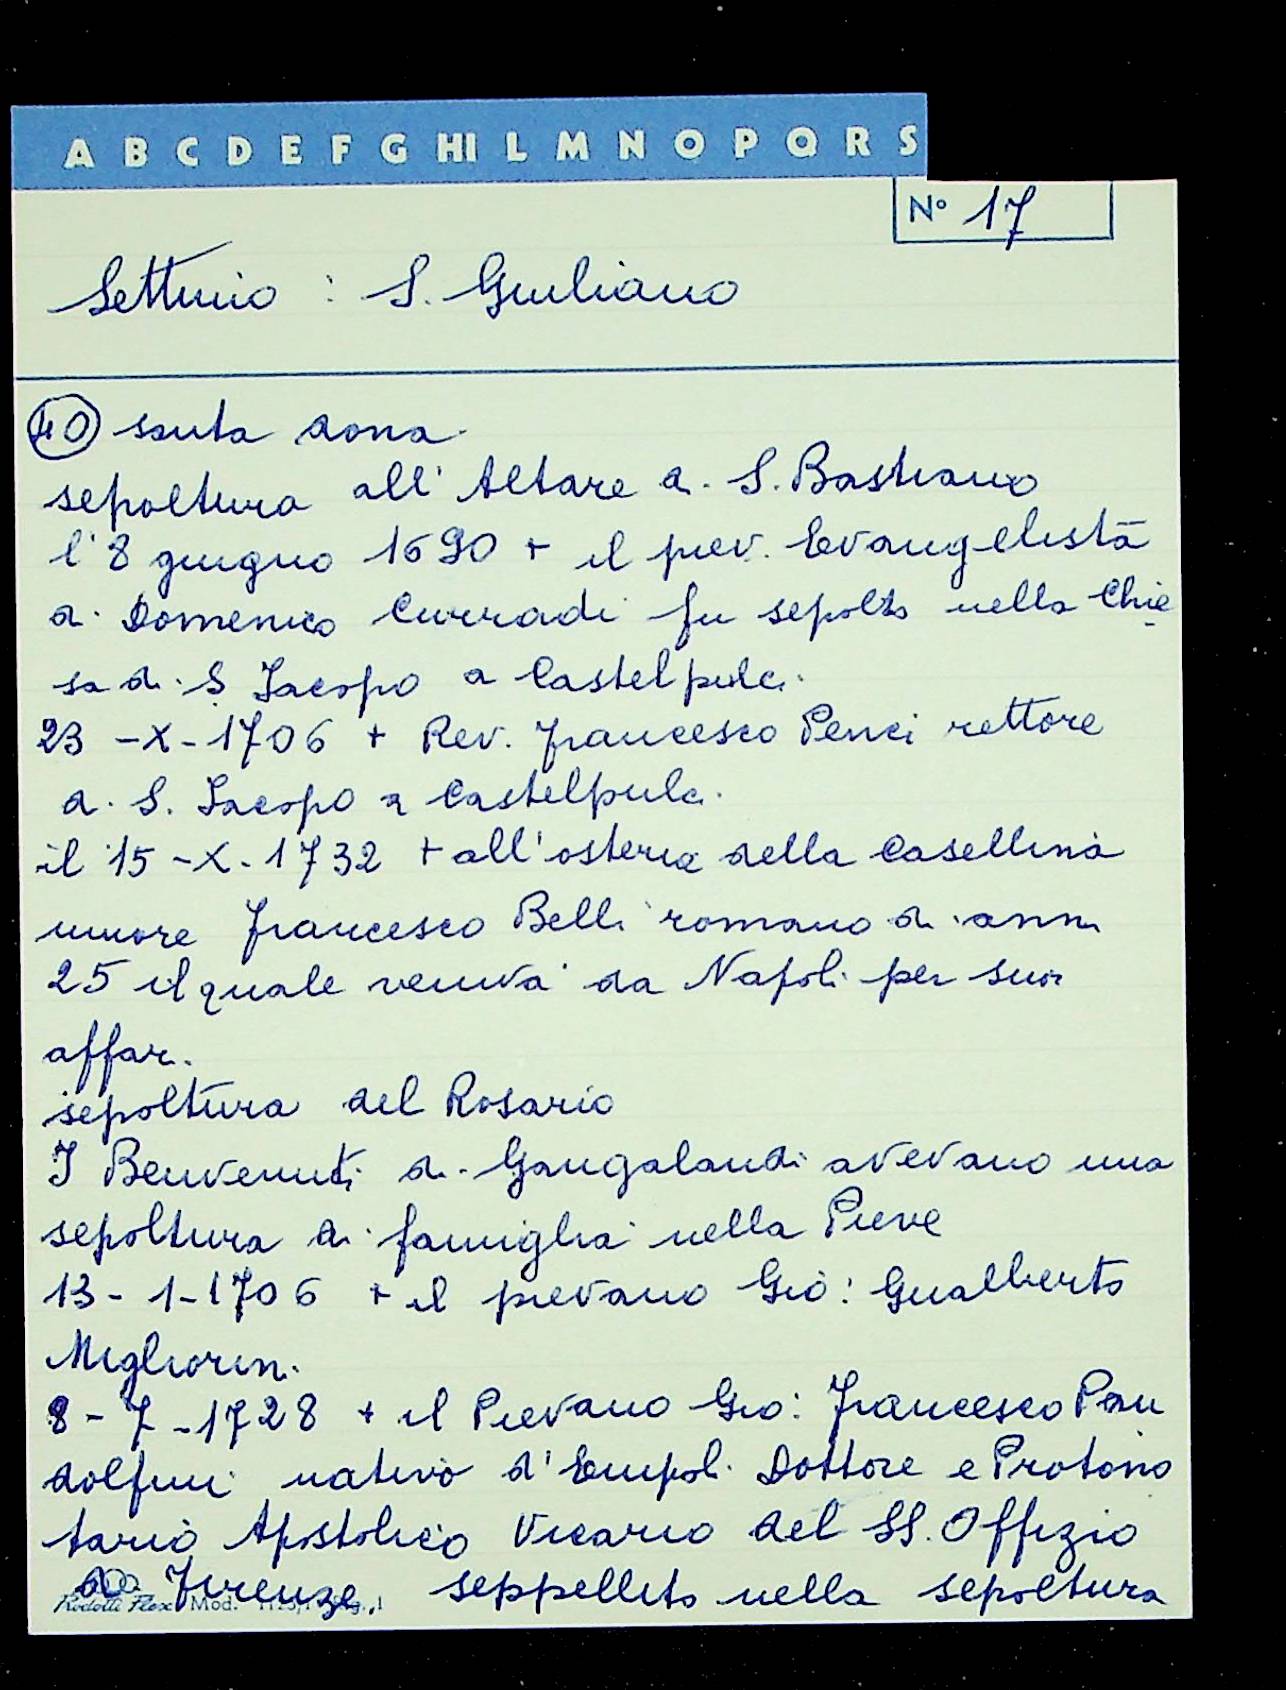 A B C D E F G HI L M N O P Q R S
N° 17
Settimo : S. Giuliano
40 santa dona
sepoltura all'Altare di S. Bastiano
l'8 giugno 1690 + il piev. Evangelista
di Domenico Curradi fu sepolto nella Chie
sa di S Jacopo a Castelpulci.
23 -X-1706 + Rev. Francesco Penci rettore
di S. Jacopo a Castelpulci.
il 15-X-1732 + all'osteria della Casellina
muore Francesco Belli romano di anni
25 il quale veniva da Napoli per suoi
affari.
sepoltura del Rosario
I Benvenuti di Gangalandi avevano una
sepoltura di famiglia nella Pieve
13-1-1706 + il pievano Gio: Gualberto
Migliorini.
8-7-1728 + il Pievano Gio: Francesco Pan
dolfini nativo d'Empoli Dottore e Protono
tario Apostolico Vicario del SS. Offizio
di Firenze, seppellito nella sepoltura
Mod.